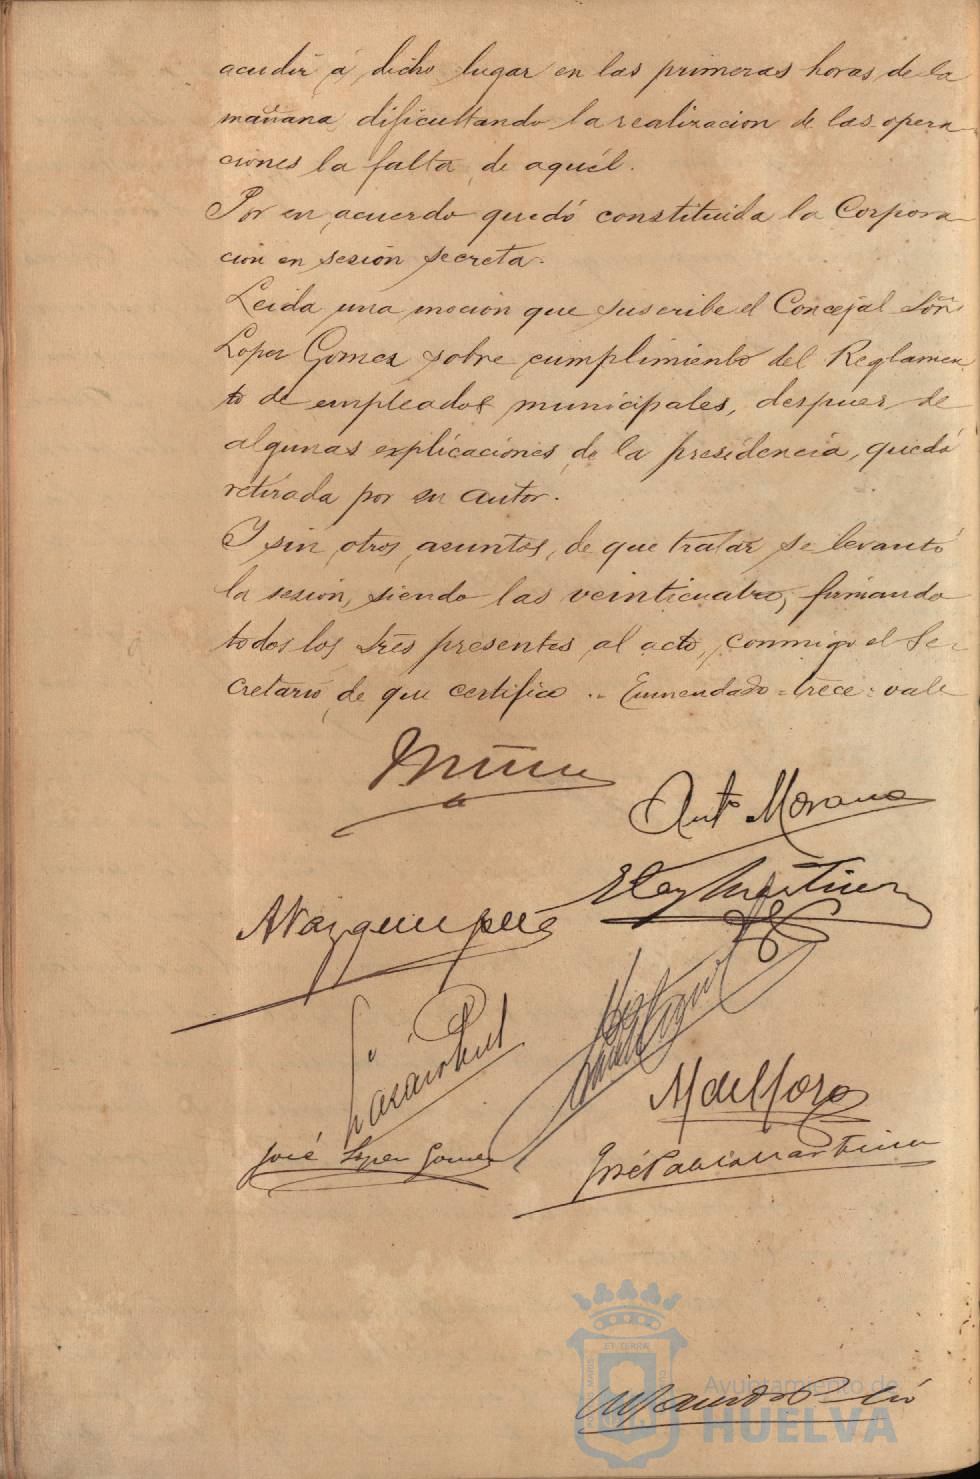 acudir á dicho lugar en las primeras horas de la
mañana, dificultando la realizacion de las opera-
ciones la falta de aquél.
Por su acuerdo quedó constituida la Corpora-
ción en sesión secreta.
Leida una mocion que suscribe el Concejal Señr
Lopez Gomez sobre cumplimiento del Reglamen-
to de empleados municipales, despues de
algunas explicaciones de la presidencia, quedó
retirada por su autor.
Y sin otros asuntos de que tratar se levantó
la sesion, siendo las veinticuatro, firmando
todos los Sres presentes al acto, conmigo el Se-
cretario de que certifico .. Enmendado = trece = vale
Antº Morano
A Vazquez
José Lopez Gomez
M del Hoyo
José Martinez
ET TERRÆ
Ayuntamiento de
HUELVA